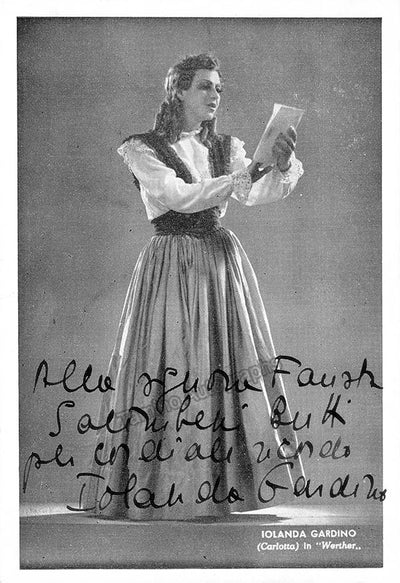 Alla signora Fausta
Salimbeni Butti
per cordiale ricordo
Iolanda Gardino
IOLANDA GARDINO
(Carlotta) in "Werther„